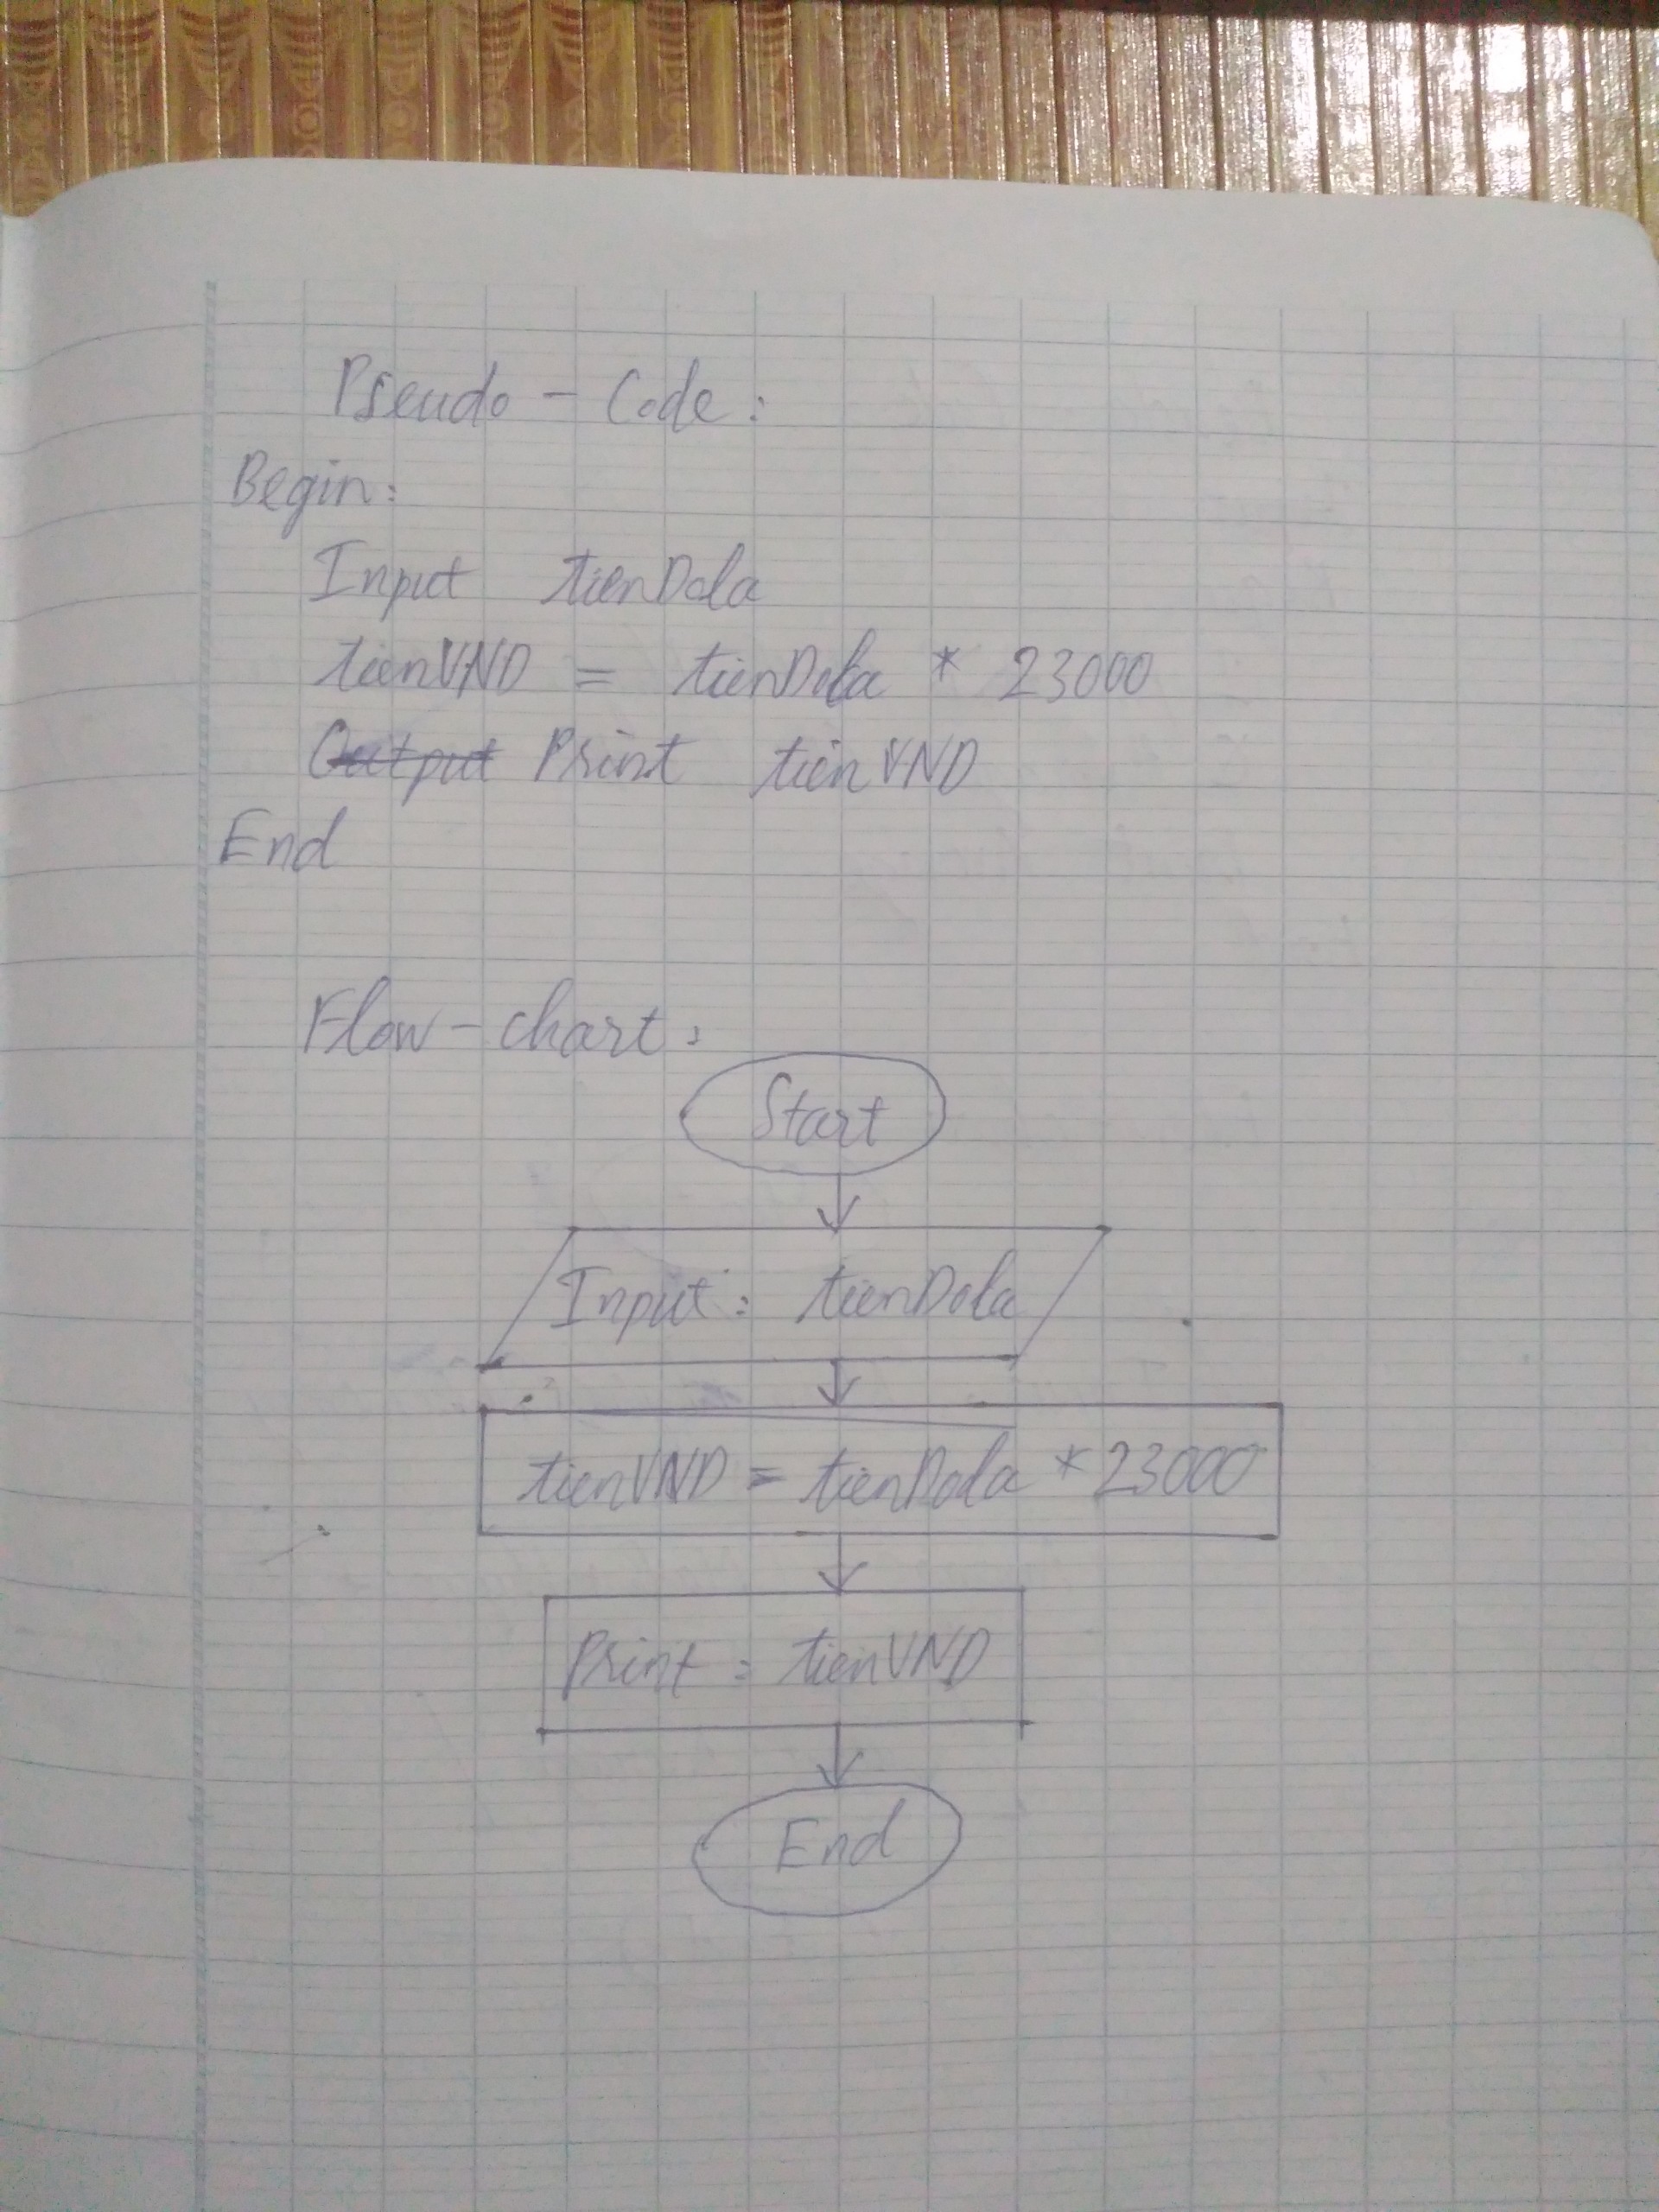 Pseudo - Code:
Begin:
Input tienDola
tienVND = tienDola * 23000
Output Print tienVND
End
Flow - chart:
Start
Input: tienDola
tienVND = tienDola * 23000
Print: tienVND
End